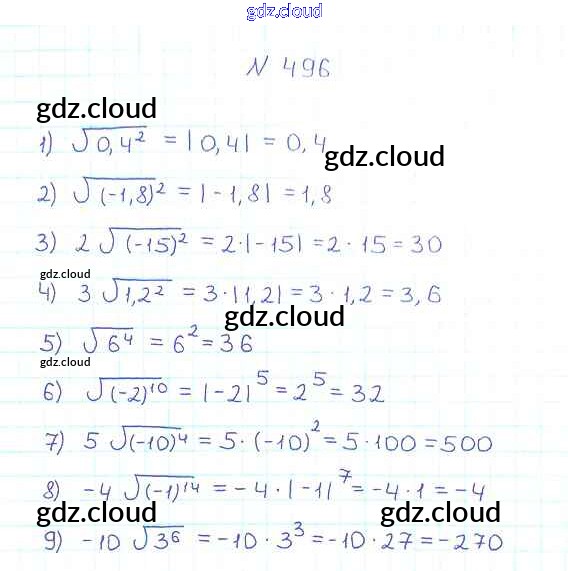 gdz.cloud
N 496
gdz.cloud
1) √0,4² = |0,4| = 0,4
gdz.cloud
2) √(-1,8)² = |-1,8| = 1,8
3) 2 √(-15)² = 2·|-15| = 2·15 = 30
gdz.cloud
4) 3 √1,2² = 3·|1,2| = 3·1,2 = 3,6
gdz.cloud
5) √6⁴ = 6² = 36
gdz.cloud
6) √(-2)¹⁰ = |-2|⁵ = 2⁵ = 32
7) 5 √(-10)⁴ = 5·(-10)² = 5·100 = 500
8) -4 √(-1)¹⁴ = -4·|-1|⁷ = -4·1 = -4
gdz.cloud gdz.cloud
9) -10 √3⁶ = -10·3³ = -10·27 = -270